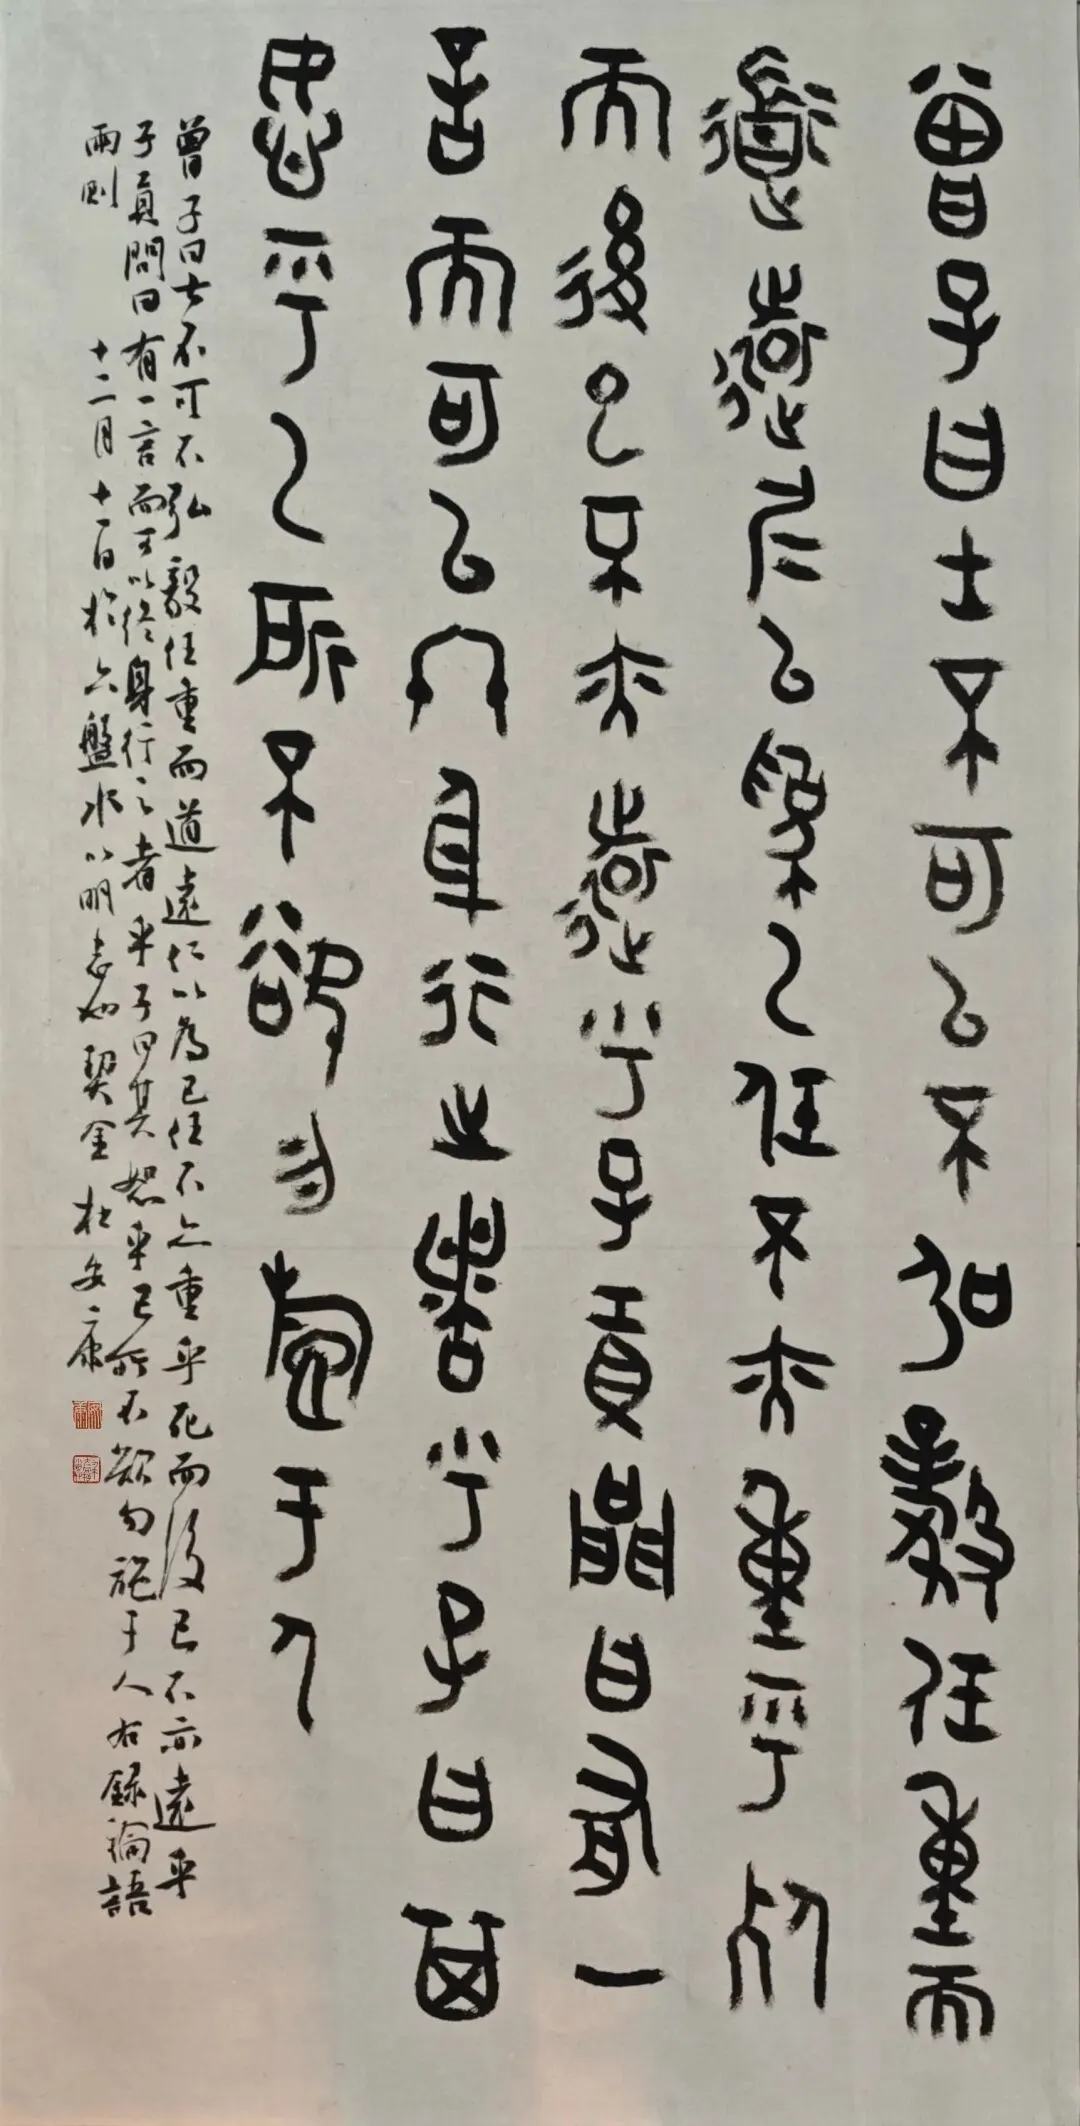 曾子曰士不可以不弘毅任重而
道遠仁以為己任不亦重乎死
而後已不亦遠乎子貢問曰有一
言而可以終身行之者乎子曰其
恕乎己所不欲勿施于人
曾子曰士不可不弘毅任重而道遠仁以為己任不亦重乎死而後已不亦遠乎
子貢問曰有一言而可以終身行之者乎子曰其恕乎己所不欲勿施于人右録論語
兩則 十二月十一日於六盤水以明志如契金杜安康